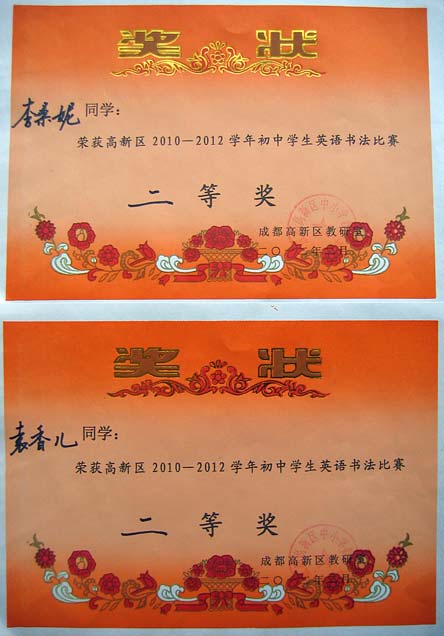 奖 状
李桑妮 同学:
荣获高新区 2010—2012 学年初中学生英语书法比赛
二 等 奖
成都高新区教研室
奖 状
袁香儿 同学:
荣获高新区 2010—2012 学年初中学生英语书法比赛
二 等 奖
成都高新区教研室